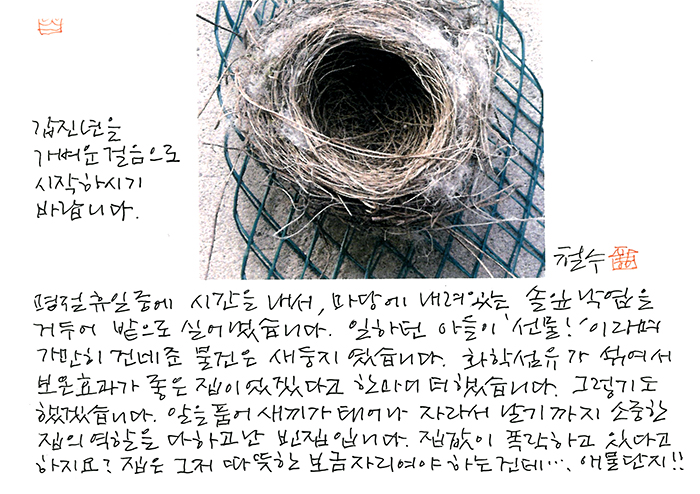 갑진년을
개벼운 걸음으로
시작하시기
바랍니다.
철수
명절휴일중에 시간을 내서, 마당에 내려앉는 솔잎낙엽을
거두어 밭으로 실어냈습니다. 일하던 아들이 '선물!'이라며
가만히 건네준 물건은 새둥지였습니다. 화학섬유가 섞여서
보온효과가 좋은 집이었겠다고 한마디 더했습니다. 그렇기도
했겠습니다. 알을 품어 새끼가 태어나 자라서 날기까지 소중한
집의 역할을 다하고난 빈집입니다. 집값이 폭락하고 있다고
하지요? 집은 그저 따뜻한 보금자리여야 하는건데…. 애물단지!!